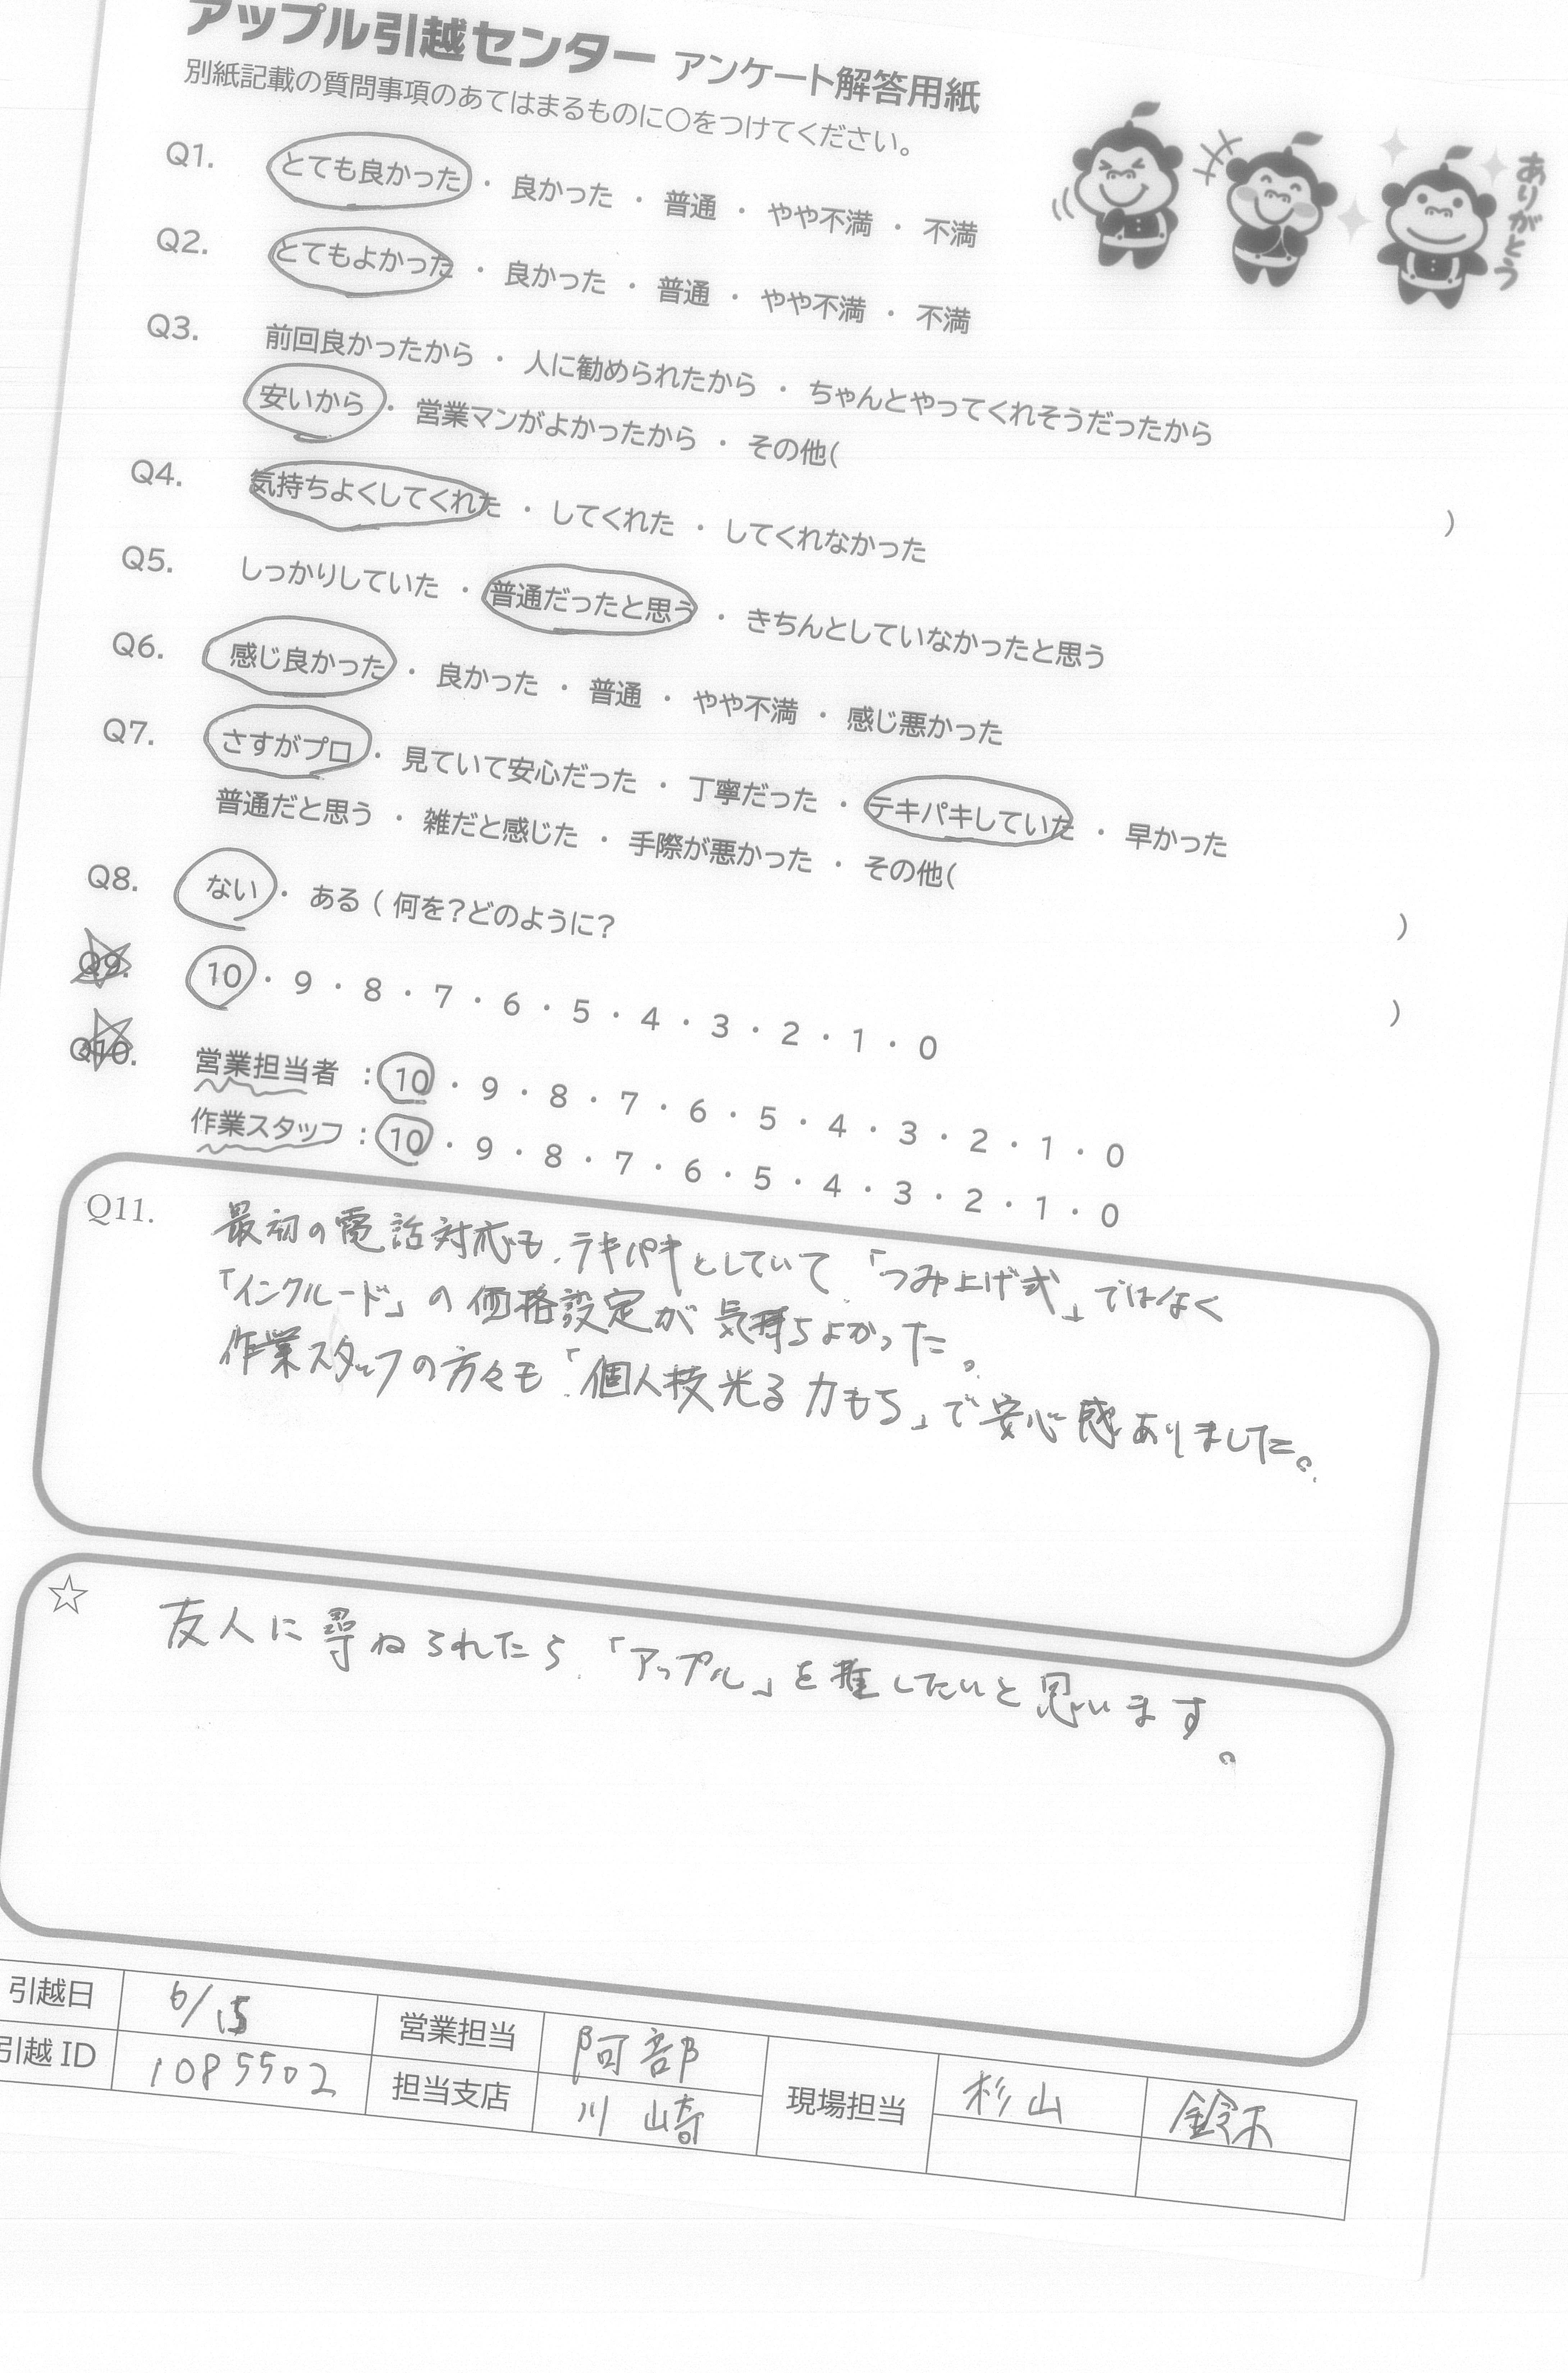 アップル引越センター アンケート解答用紙
別紙記載の質問事項のあてはまるものに〇をつけてください。
ありがとう
Q1. とても良かった ・ 良かった ・ 普通 ・ やや不満 ・ 不満
Q2. とてもよかった ・ 良かった ・ 普通 ・ やや不満 ・ 不満
Q3. 前回良かったから ・ 人に勧められたから ・ ちゃんとやってくれそうだったから
安いから ・ 営業マンがよかったから ・ その他( )
Q4. 気持ちよくしてくれた ・ してくれた ・ してくれなかった
Q5. しっかりしていた ・ 普通だったと思う ・ きちんとしていなかったと思う
Q6. 感じ良かった ・ 良かった ・ 普通 ・ やや不満 ・ 感じ悪かった
Q7. さすがプロ ・ 見ていて安心だった ・ 丁寧だった ・ テキパキしていた ・ 早かった
普通だと思う ・ 雑だと感じた ・ 手際が悪かった ・ その他( )
Q8. ない ・ ある ( 何を?どのように? )
Q9. 10 ・ 9 ・ 8 ・ 7 ・ 6 ・ 5 ・ 4 ・ 3 ・ 2 ・ 1 ・ 0
Q10. 営業担当者 : 10 ・ 9 ・ 8 ・ 7 ・ 6 ・ 5 ・ 4 ・ 3 ・ 2 ・ 1 ・ 0
作業スタッフ : 10 ・ 9 ・ 8 ・ 7 ・ 6 ・ 5 ・ 4 ・ 3 ・ 2 ・ 1 ・ 0
Q11. 最初の電話対応も、テキパキとしていて「つみ上げ式」ではなく
「インクルード」の価格設定が気持ちよかった。
作業スタッフの方々も「個人技光る力もち」で安心感ありました。
☆ 友人に尋ねられたら、「アップル」を推したいと思います。
引越日 6/15 営業担当 阿部 現場担当 杉山 鈴木
引越ID 1085502 担当支店 川崎